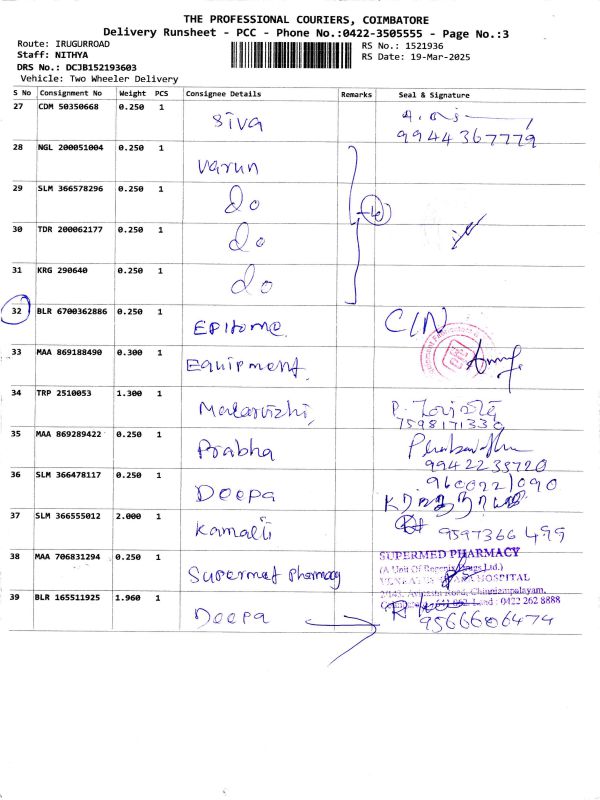 THE PROFESSIONAL COURIERS, COIMBATORE
Delivery Runsheet - PCC - Phone No.:0422-3505555 - Page No.:3
Route: IRUGURROAD
Staff: NITHYA
DRS No.: DCJB152193603
Vehicle: Two Wheeler Delivery
RS No.: 1521936
RS Date: 19-Mar-2025
S No Consignment No Weight PCS Consignee Details Remarks Seal & Signature
27 CDM 50350668 0.250 1 Siva
9944367779
28 NGL 200051004 0.250 1 Varun
29 SLM 366578296 0.250 1 do
30 TDR 200062177 0.250 1 do
31 KRG 290640 0.250 1 do
32 BLR 6700362886 0.250 1 Epitome C/N
33 MAA 869188490 0.300 1 Equipment
34 TRP 2510053 1.300 1 Malarvizhi
7598171330
35 MAA 869289422 0.250 1 Prabha
9942235720
36 SLM 366478117 0.250 1 Deepa 9600221090
37 SLM 366555012 2.000 1 Kamali 9597366499
38 MAA 706831294 0.250 1 Supermet Pharmacy
SUPERMED PHARMACY
(A Unit Of Regenix Drugs Ltd.)
HOSPITAL
2/143, Avinashi Road, Chinniampalayam,
Land : 0422 262 8888
39 BLR 165511925 1.960 1 Deepa 9566606474